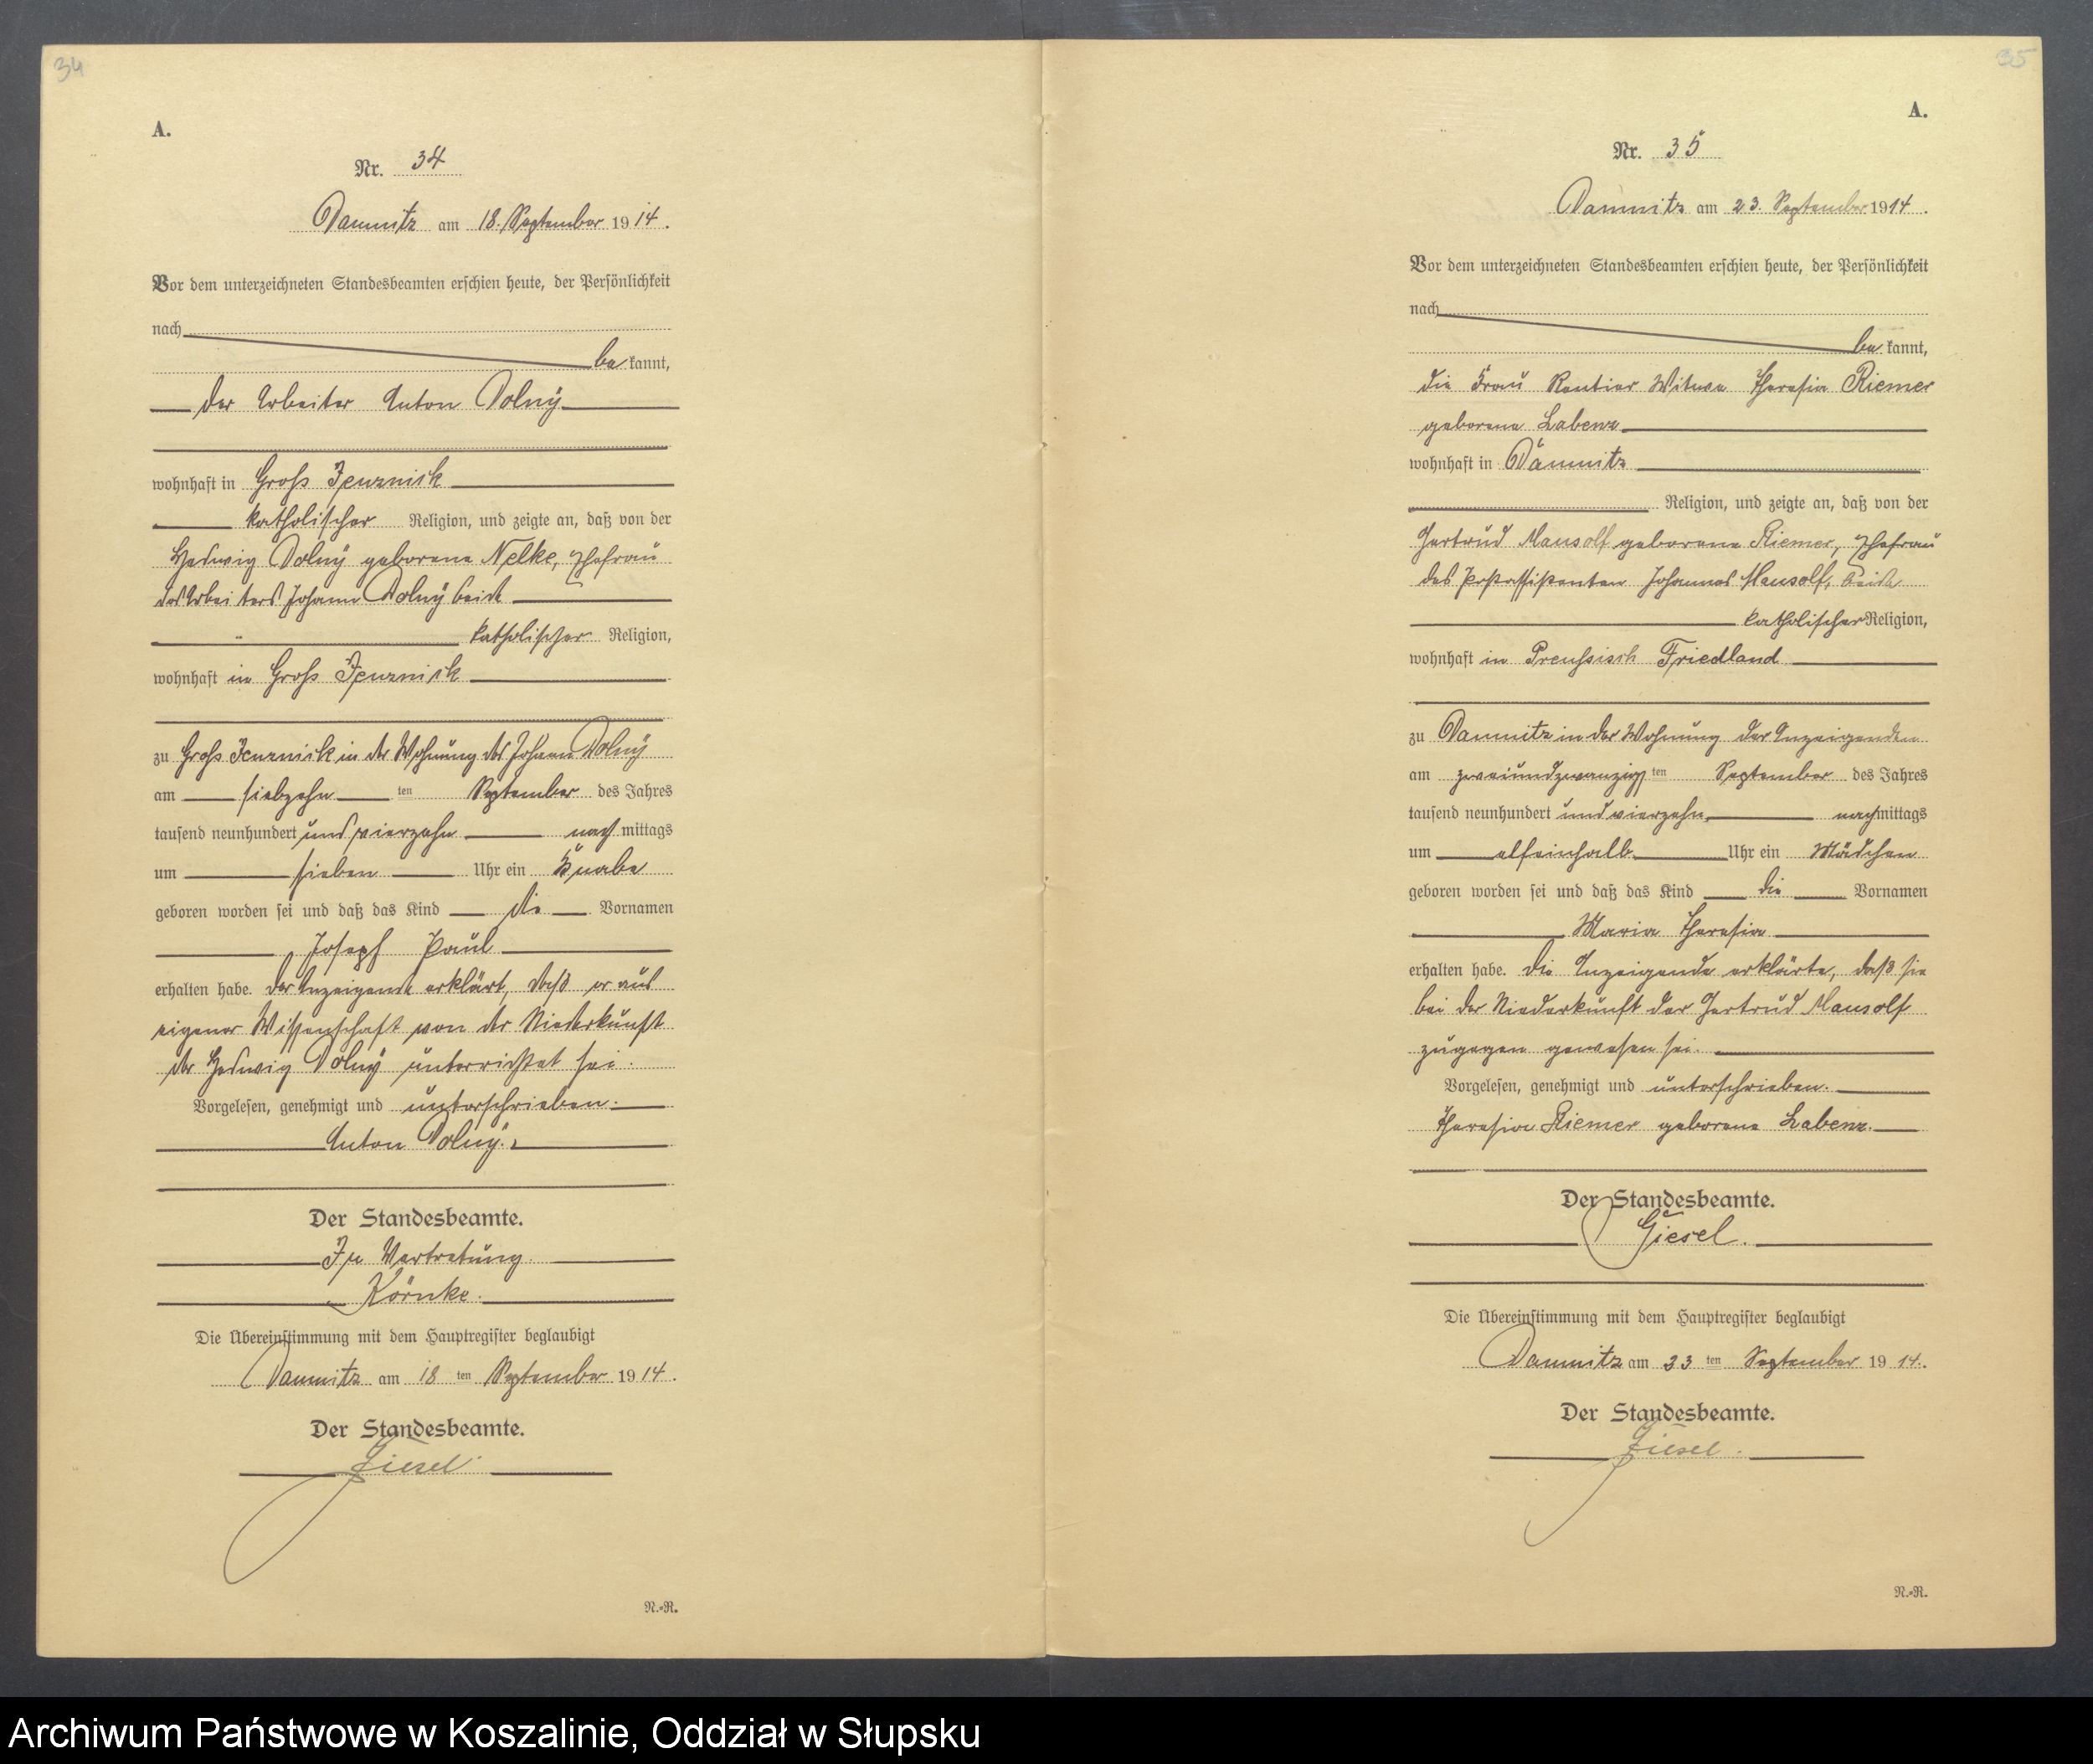 34
A.
Nr. 34
Damnitz am 18. September 1914.
Vor dem unterzeichneten Standesbeamten erschien heute, der Persönlichkeit
nach
be kannt,
der Arbeiter Anton Dolny
wohnhaft in Groß Jenznick
katholischer Religion, und zeigte an, daß von der
Hedwig Dolny geborene Nelke, Ehefrau
des Arbeiters Johann Dolny beide
katholischer Religion,
wohnhaft in Groß Jenznick
zu Groß Jenznick in der Wohnung des Johann Dolny
am siebzehn ten September des Jahres
tausend neunhundert und vierzehn nach mittags
um sieben Uhr ein Knabe
geboren worden sei und daß das Kind die Vornamen
Joseph Paul
erhalten habe. Der Anzeigende erklärt, daß er aus
eigener Wissenschaft von der Niederkunft
der Hedwig Dolny unterrichtet sei.
Vorgelesen, genehmigt und unterschrieben.
Anton Dolny.
Der Standesbeamte.
In Vertretung
Körnke.
Die Übereinstimmung mit dem Hauptregister beglaubigt
Damnitz am 18 ten September 1914.
Der Standesbeamte.
Giesel.
N.-R.
35
A.
Nr. 35
Damnitz am 23. September 1914.
Vor dem unterzeichneten Standesbeamten erschien heute, der Persönlichkeit
nach
be kannt,
die Frau Rentier Witwe Theresia Riemer
geborene Labenz
wohnhaft in Damnitz
Religion, und zeigte an, daß von der
Gertrud Mausolf geborene Riemer, Ehefrau
des Postassistenten Johannes Mausolf, beide
katholischer Religion,
wohnhaft in Preußisch Friedland
zu Damnitz in der Wohnung der Anzeigenden
am zweiundzwanzigsten ten September des Jahres
tausend neunhundert und vierzehn nachmittags
um elfeinhalb Uhr ein Mädchen
geboren worden sei und daß das Kind die Vornamen
Maria Theresia
erhalten habe. Die Anzeigende erklärte, daß sie
bei der Niederkunft der Gertrud Mausolf
zugegen gewesen sei.
Vorgelesen, genehmigt und unterschrieben.
Theresia Riemer geborene Labenz.
Der Standesbeamte.
Giesel.
Die Übereinstimmung mit dem Hauptregister beglaubigt
Damnitz am 23 ten September 1914.
Der Standesbeamte.
Giesel.
N.-R.
Archiwum Państwowe w Koszalinie, Oddział w Słupsku